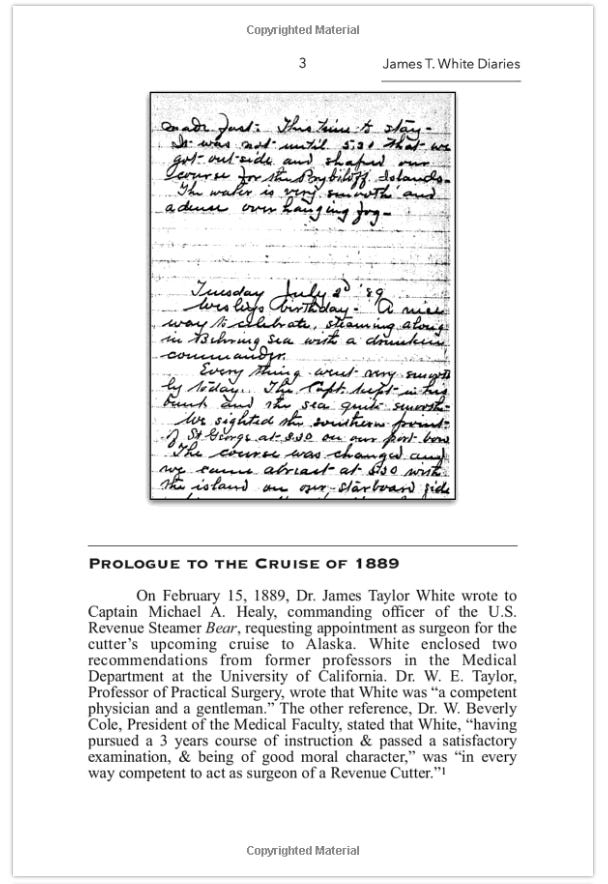 Copyrighted Material
3 James T. White Diaries
made fast. This time to stay-
It was not until 5.30 that we
got outside and shaped our
course for the Pribiloff Islands-
The water is very smooth and
a dense over hanging fog-
Tuesday July 2d '89
Wesleys birthday- A nice
way to celebrate, steaming along
in Behring sea with a drunken
commander.
Every thing went very smooth
ly today. The Capt. kept in his
bunk and the sea quite smooth-
We sighted the southern point
of St George at 3.30 on our port bow
The course was changed and
we came abreast at 5.30 with
the island on our starboard side
PROLOGUE TO THE CRUISE OF 1889
On February 15, 1889, Dr. James Taylor White wrote to
Captain Michael A. Healy, commanding officer of the U.S.
Revenue Steamer Bear, requesting appointment as surgeon for the
cutter’s upcoming cruise to Alaska. White enclosed two
recommendations from former professors in the Medical
Department at the University of California. Dr. W. E. Taylor,
Professor of Practical Surgery, wrote that White was “a competent
physician and a gentleman.” The other reference, Dr. W. Beverly
Cole, President of the Medical Faculty, stated that White, “having
pursued a 3 years course of instruction & passed a satisfactory
examination, & being of good moral character,” was “in every
way competent to act as surgeon of a Revenue Cutter.”1
Copyrighted Material